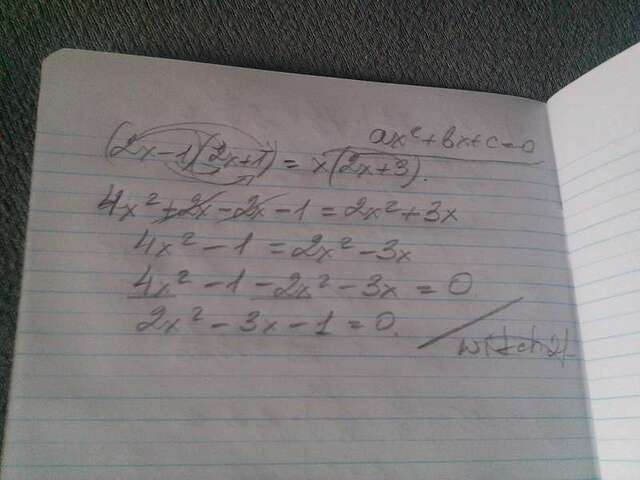 ax²+bx+c=0
(2x-1)(2x+1) = x(2x+3).
4x²+2x-2x-1=2x²+3x
4x²-1=2x²-3x
4x²-1-2x²-3x=0.
2x²-3x-1=0.